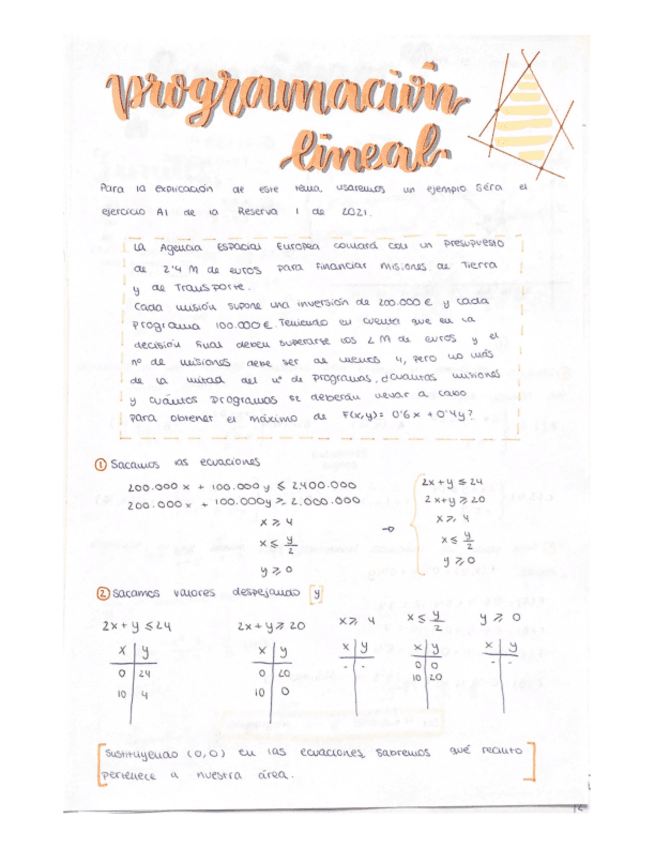 programación
lineal
Para la explicación de este tema, usaremos un ejemplo será el
ejercicio A1 de la Reserva 1 de 2021.
La Agencia Espacial Europea contará con un presupuesto
de 2'4 M de euros para financiar misiones de Tierra
y de Transporte.
Cada misión supone una inversión de 200.000 € y cada
programa 100.000 €. Teniendo en cuenta que en la
decisión final deben superarse los 2 M de euros y el
nº de misiones debe ser al menos 4, pero no más
de la mitad del nº de programas, ¿cuántas misiones
y cuántos programas se deberán llevar a cabo
para obtener el máximo de F(x,y)= 0'6x + 0'4y?
① Sacamos las ecuaciones
200.000 x + 100.000 y ≤ 2.400.000
200.000 x + 100.000y ≥ 2.000.000
x ≥ 4
x ≤ y/2
y ≥ 0
→
2x + y ≤ 24
2x+y ≥ 20
x ≥ 4
x ≤ y/2
y ≥ 0
② Sacamos valores despejando y
2x + y ≤ 24
x y
0 24
10 4
2x + y ≥ 20
x y
0 20
10 0
x ≥ 4
x y
- -
x ≤ y/2
x y
0 0
10 20
y ≥ 0
x y
- -
Sustituyendo (0,0) en las ecuaciones sabremos qué recinto
pertenece a nuestra área.